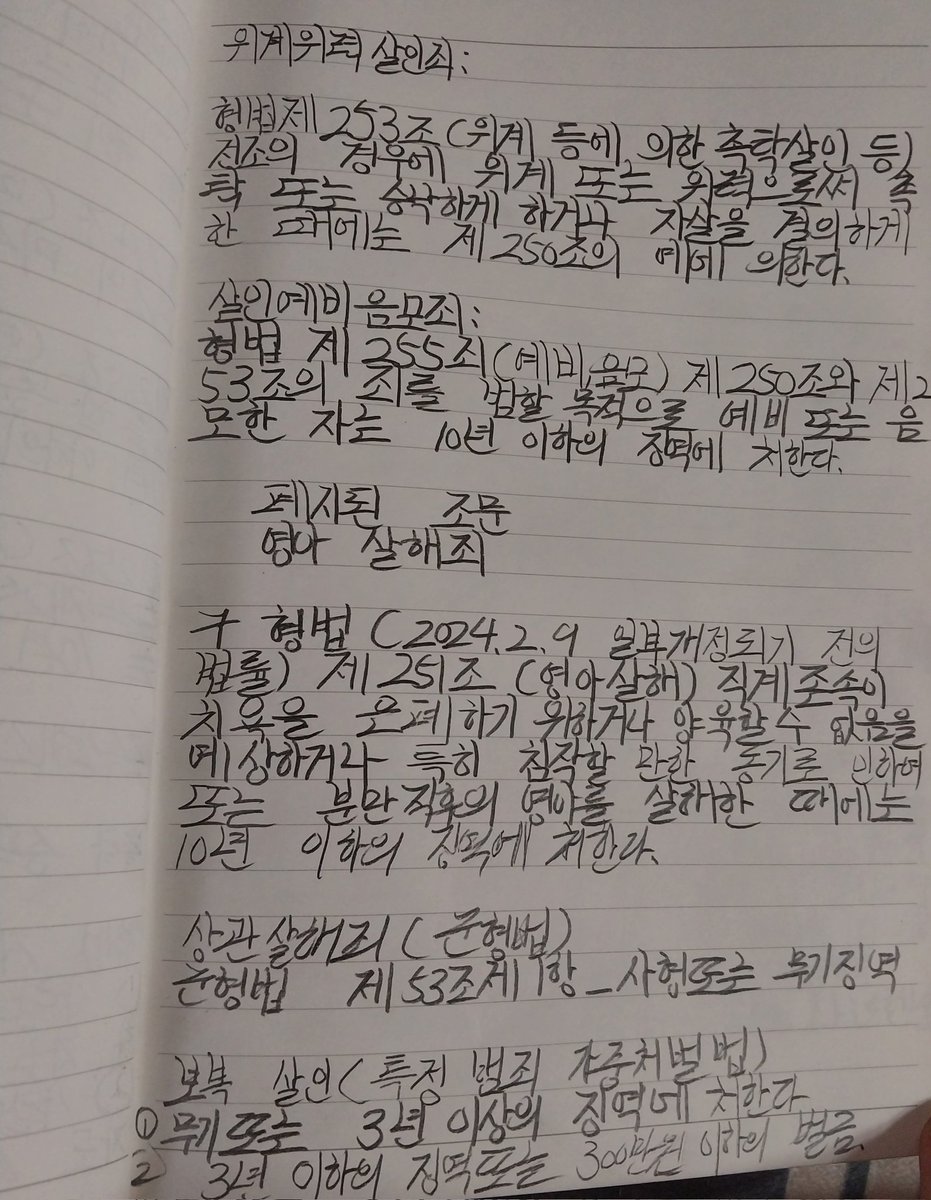 위계위력 살인죄:
형법제 253조 (위계 등에 의한 촉탁살인 등)
전조의 경우에 위계 또는 위력으로써 촉
탁 또는 승낙하게 하거나 자살을 결의하게
한 때에는 제 250조의 예에 의한다.
살인예비음모죄:
형법 제 255죄 (예비,음모) 제 250조와 제2
53조의 죄를 범할 목적으로 예비 또는 음
모한 자는 10년 이하의 징역에 처한다.
폐지된 조문
영아 살해죄
구 형법 (2024.2.9 일부개정되기 전의
법률) 제 251조 (영아살해) 직계존속이
치욕을 은폐하기 위하거나 양육할 수 없음을
예상하거나 특히 참작할 만한 동기로 인하여
또는 분만직후의 영아를 살해한 때에는
10년 이하의 징역에 처한다.
상관살해죄 (군형법)
군형법 제 53조제1항 _ 사형또는 무기징역
보복 살인 (특정 범죄 가중처벌법)
① 무기또는 3년 이상의 징역에 처한다
2 3년 이하의 징역또는 300만원 이하의 벌금.